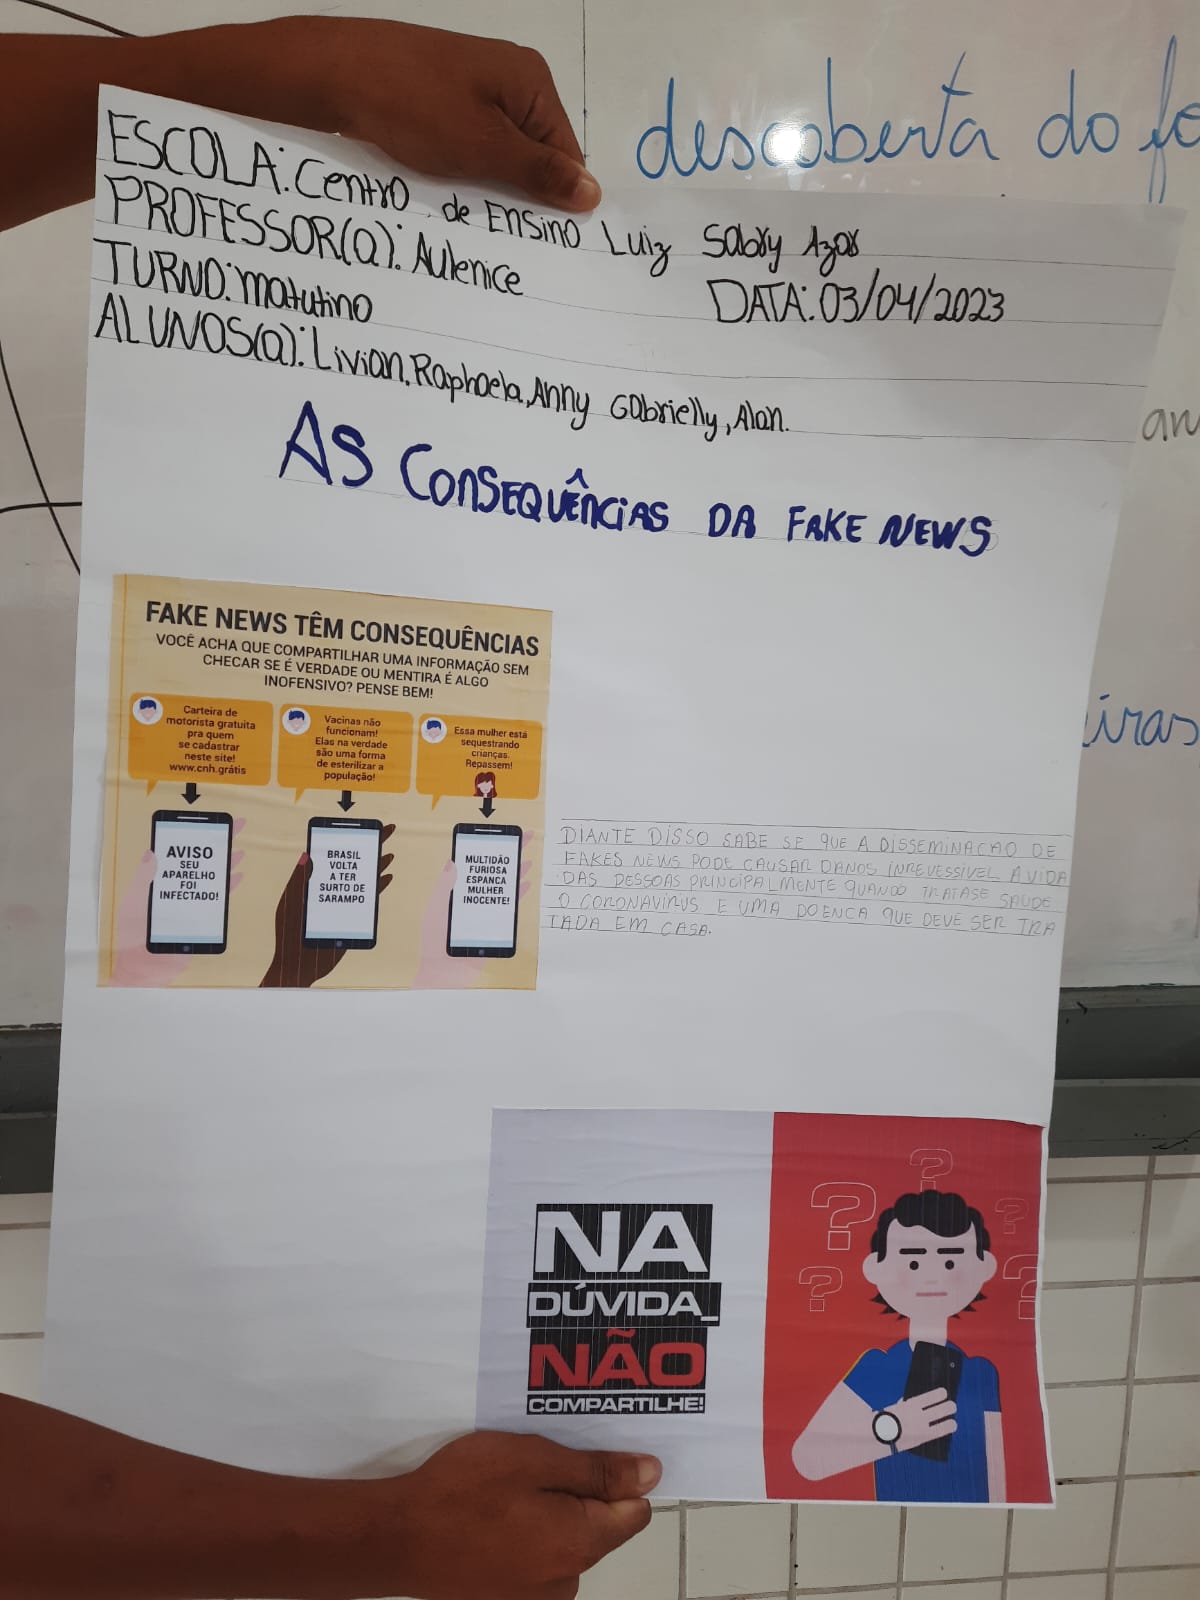 descoberta do fo
ESCOLA: Centro de Ensino Luiz Sabry Azar
PROFESSOR(a): Aulenice
TURNO: matutino
DATA: 03/04/2023
ALUNOS(a): Livian, Raphaela, Anny Gabrielly, Alan.
an
AS CONSEQUÊNCIAS DA FAKE NEWS
FAKE NEWS TÊM CONSEQUÊNCIAS
VOCÊ ACHA QUE COMPARTILHAR UMA INFORMAÇÃO SEM
CHECAR SE É VERDADE OU MENTIRA É ALGO
INOFENSIVO? PENSE BEM!
Carteira de
motorista gratuita
pra quem
se cadastrar
neste site!
www.cnh.grátis
Vacinas não
funcionam!
Elas na verdade
são uma forma
de esterilizar a
população!
Essa mulher está
sequestrando
crianças.
Repassem!
AVISO
SEU
APARELHO
FOI
INFECTADO!
BRASIL
VOLTA
A TER
SURTO DE
SARAMPO
MULTIDÃO
FURIOSA
ESPANCA
MULHER
INOCENTE!
eiras
DIANTE DISSO SABE SE QUE A DISSEMINACAO DE
FAKES NEWS PODE CAUSAR DANOS INREVESSIVEL A VIDA
DAS PESSOAS PRINCIPALMENTE QUANDO TRATASE SAUDE
O CORONAVIRUS E UMA DOENCA QUE DEVE SER TRA
TADA EM CASA.
NA
DÚVIDA_
NÃO
COMPARTILHE!